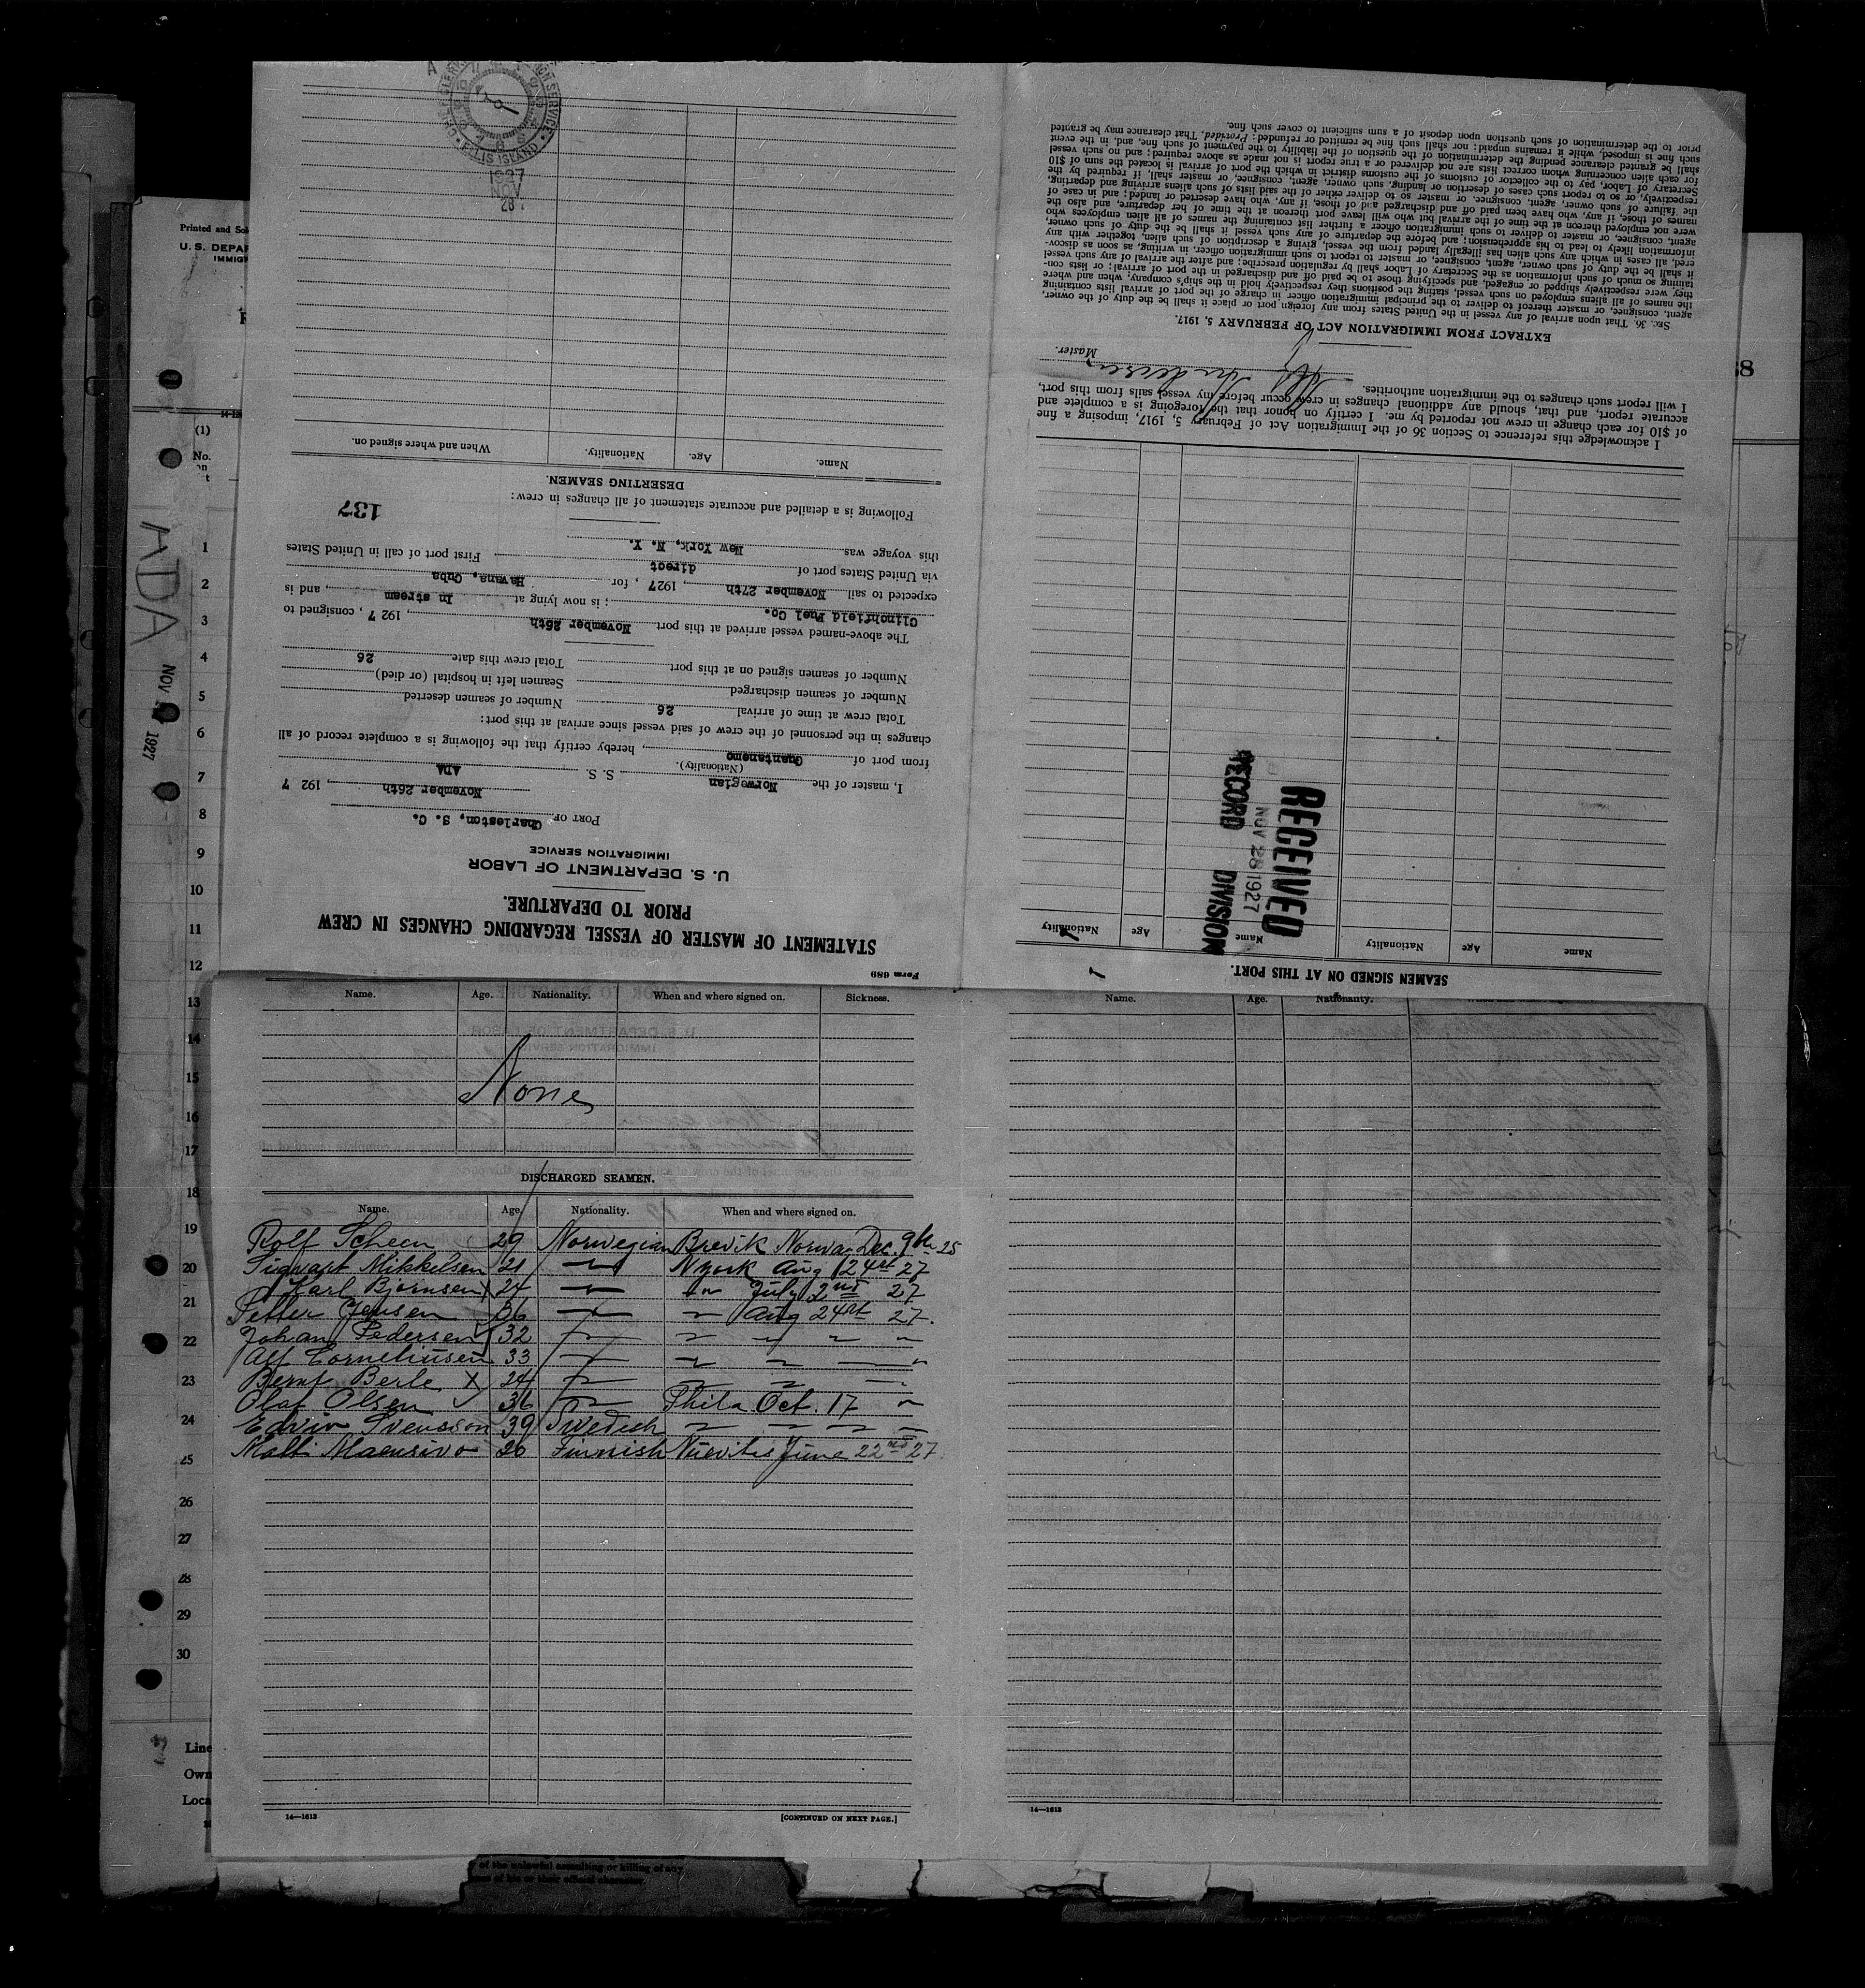 CHIEF CLERK
ELLIS ISLAND
1927
NOV
28
Printed and Sol
U. S. DEPAR
IMMIG
(1)
No.
on
t
ADA
NOV 1927
1
2
3
4
5
6
7
8
9
10
11
12
13
14
15
16
17
18
19
20
21
22
23
24
25
26
27
28
29
30
Line
Own
Loca
Form 689
STATEMENT OF MASTER OF VESSEL REGARDING CHANGES IN CREW
PRIOR TO DEPARTURE.
U. S. DEPARTMENT OF LABOR
IMMIGRATION SERVICE
PORT OF Charleston, S. C.
November 26th, 1927
I, master of the Norwegian S. S. ADA
(Nationality).
from port of Guantanemo, hereby certify that the following is a complete record of all
changes in the personnel of the crew of said vessel since arrival at this port:
Total crew at time of arrival 26 Number of seamen deserted
Number of seamen discharged Seamen left in hospital (or died)
Number of seamen signed on at this port Total crew this date 26
The above-named vessel arrived at this port November 25th, 1927, consigned to
Clinchfield Fuel Co.; is now lying at In stream, and is
expected to sail November 27th, 1927, for Havana, Cuba
via United States port of direct
this voyage was New York, N. Y. First port of call in United States
137
Following is a detailed and accurate statement of all changes in crew:
DESERTING SEAMEN.
Name. Age. Nationality. When and where signed on.
SEAMEN SIGNED ON AT THIS PORT.
Name Age Nationality Name Age Nationality
RECEIVED
NOV 28 1927
RECORD DIVISION
I acknowledge this reference to Section 36 of the Immigration Act of February 5, 1917, imposing a fine
of $10 for each change in crew not reported by me. I certify on honor that the foregoing is a complete and
accurate report, and that, should any additional changes in crew occur before my vessel sails from this port,
I will report such changes to the immigration authorities.
Master.
EXTRACT FROM IMMIGRATION ACT OF FEBRUARY 5, 1917.
SEC. 36. That upon arrival of any vessel in the United States from any foreign port or place it shall be the duty of the owner,
agent, consignee, or master thereof to deliver to the principal immigration officer in charge of the port of arrival lists containing
the names of all aliens employed on such vessel, stating the positions they respectively hold in the ship's company, when and where
they were respectively shipped or engaged, and specifying those to be paid off and discharged in the port of arrival; or lists con-
taining so much of such information as the Secretary of Labor shall by regulation prescribe; and after the arrival of any such vessel
it shall be the duty of such owner, agent, consignee, or master to report to such immigration officer, in writing, as soon as discov-
ered, all cases in which any such alien has illegally landed from the vessel, giving a description of such alien, together with any
information likely to lead to his apprehension; and before the departure of any such vessel it shall be the duty of such owner,
agent, consignee, or master to deliver to such immigration officer a further list containing the names of all alien employees who
were not employed thereon at the time of the arrival but who will leave port thereon at the time of her departure, and also the
names of those, if any, who have been paid off and discharged and of those, if any, who have deserted or landed; and in case of
the failure of such owner, agent, consignee, or master so to deliver either of the said lists of such aliens arriving and departing,
respectively, or so to report such cases of desertion or landing, such owner, agent, consignee, or master, shall, if required by the
Secretary of Labor, pay to the collector of customs of the customs district in which the port of arrival is located the sum of $10
for each alien concerning whom correct lists are not delivered or a true report is not made as above required; and no such vessel
shall be granted clearance pending the determination of the question of the liability to the payment of such fine, and, in the event
such fine is imposed, while it remains unpaid; nor shall such fine be remitted or refunded: Provided, That clearance may be granted
prior to the determination of such question upon deposit of a sum sufficient to cover such fine.
Name. Age. Nationality. When and where signed on. Sickness.
None
DISCHARGED SEAMEN.
Name. Age. Nationality. When and where signed on.
Rolf Scheen 29 Norwegian Brevik Norwa Dec. 9th 25
Sigvart Mikkelsen 21 N York Aug 24rt 27
Karl Bjornsen X 24 July 2nd 27
Petter Jensen 36 Aug 24rt 27.
Johan Pedersen 32
Alf Corneliusen 33
Bernt Berle X 24
Olaf Olsen 36 Phila Oct. 17
Edvin Svensson 39 Swedish
Matti Maensivo 26 Finnish Nuevitas June 22nd 27
14—1613
[CONTINUED ON NEXT PAGE.]
Name. Age. Nationality.
14—1613
of the unlawful assaulting or killing of any
of his or their official character